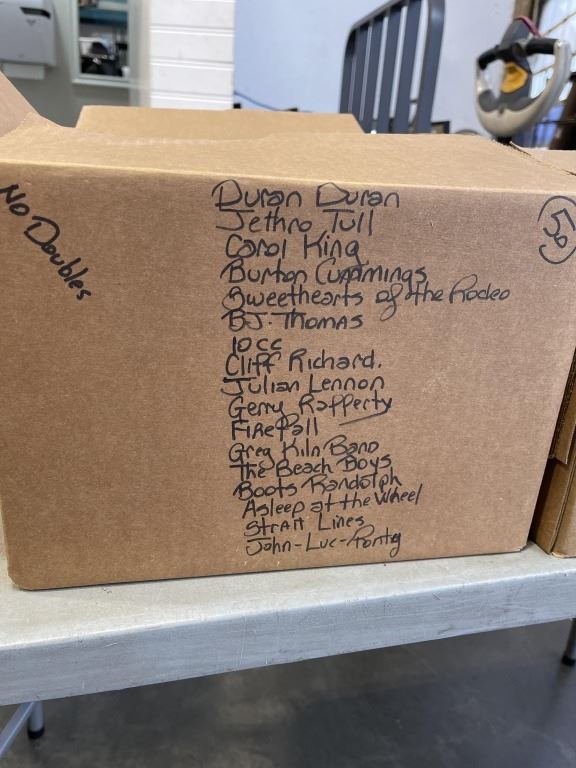 No Doubles
Duran Duran
Jethro Tull
Carol King
Burton Cummings
Sweethearts of the Rodeo
BJ. Thomas
10cc
Cliff Richard.
Julian Lennon
Gerry Rafferty
Firefall
Greg Kiln Band
The Beach Boys
Boots Randolph
Asleep at the Wheel
Strait Lines
John-Luc-Ponty
50